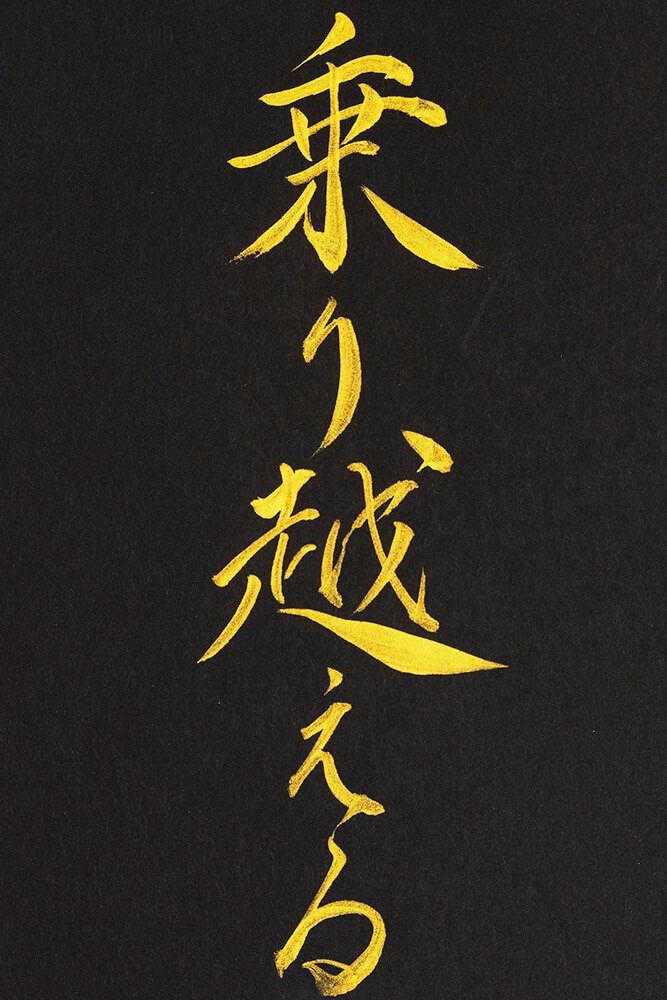 乗り越える